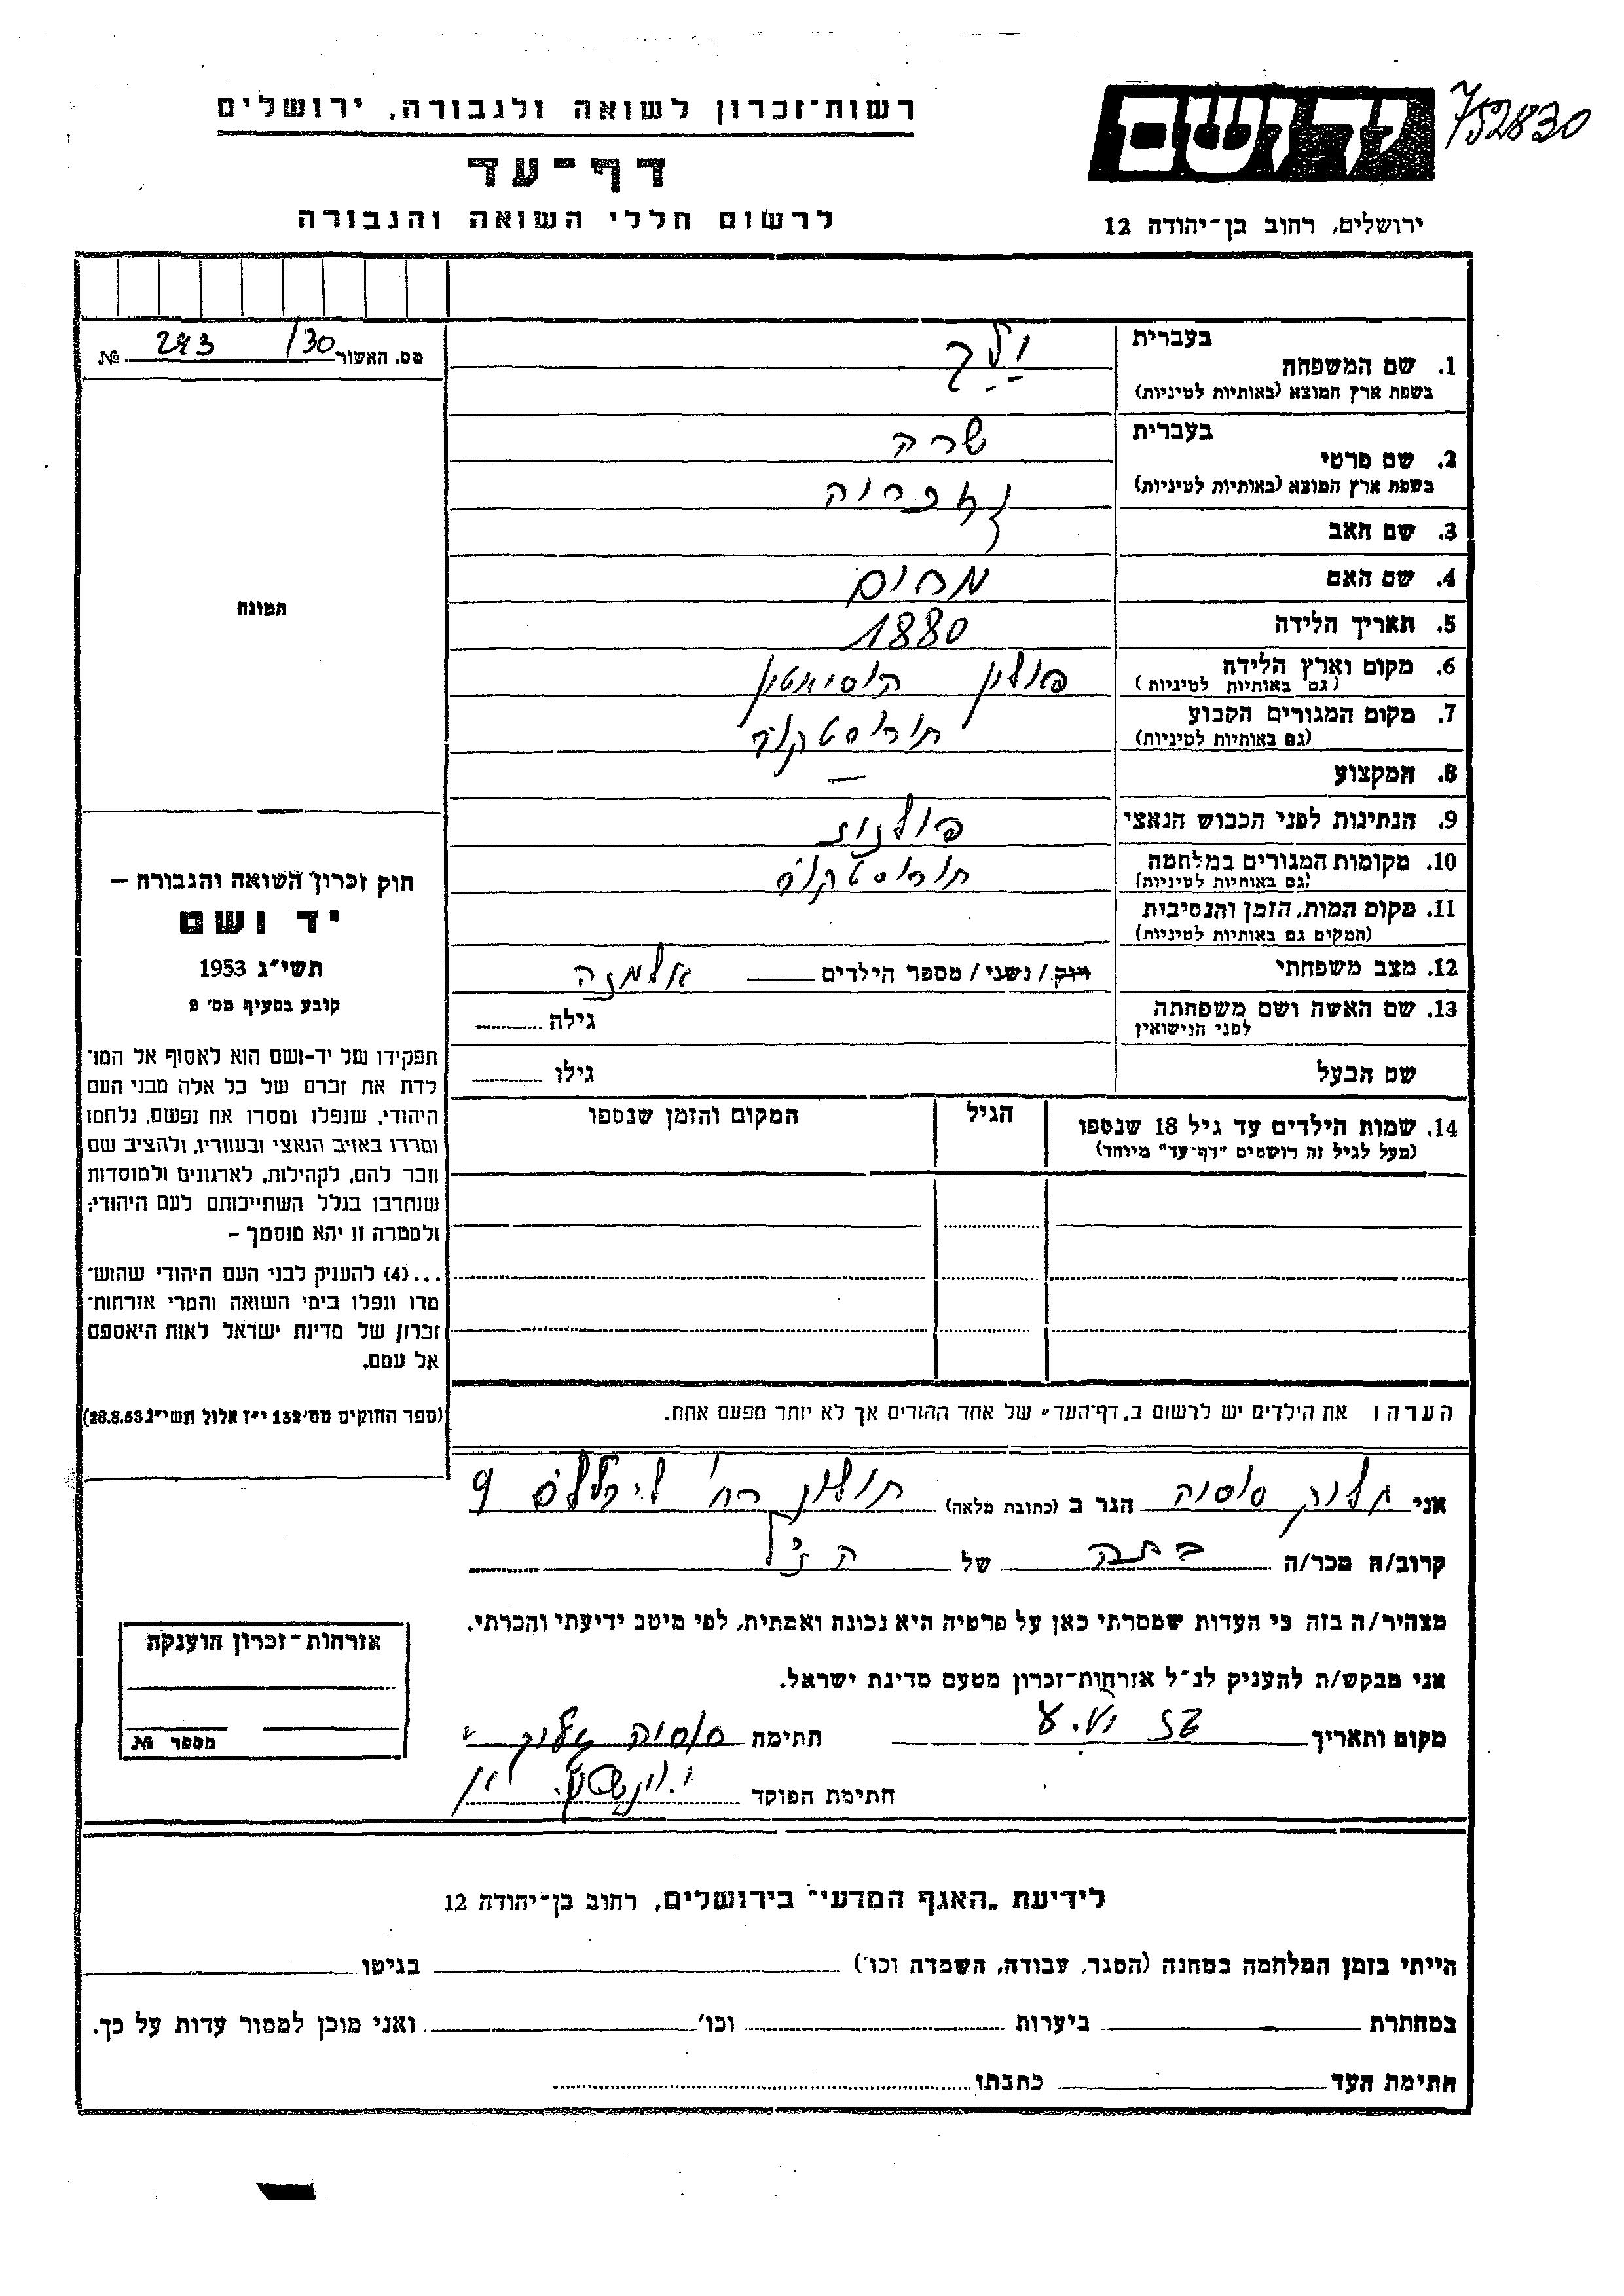 752830
יד ושם
רשות-זכרון לשואה ולגבורה, ירושלים
דף-עד
לרשום חללי השואה והגבורה
ירושלים, רחוב בן-יהודה 12
מס. האשור 293 /30 №
בעברית
1. שם המשפחה
בשפת ארץ המוצא (באותיות לטיניות)
בעברית שרה
2. שם פרטי
בשפת ארץ המוצא (באותיות לטיניות)
3. שם האב
4. שם האם מרים
5. תאריך הלידה 1880
6. מקום וארץ הלידה פולין
(גם באותיות לטיניות)
7. מקום המגורים הקבוע חורוסטקוב
(גם באותיות לטיניות)
8. המקצוע —
9. הנתינות לפני הכבוש הנאצי פולנית
10. מקומות המגורים במלחמה חורוסטקוב
(גם באותיות לטיניות)
11. מקום המות, הזמן והנסיבות
(המקום גם באותיות לטיניות)
12. מצב משפחתי רווק / נשוי / מספר הילדים אלמנה
13. שם האשה ושם משפחתה גילה
לפני הנישואין
שם הבעל גילו
14. שמות הילדים עד גיל 18 שנספו הגיל המקום והזמן שנספו
(מעל לגיל זה רושמים "דף-עד" מיוחד)
תמונה
חוק זכרון השואה והגבורה —
יד ושם
תשי"ג 1953
קובע בסעיף מס' 2
תפקידו של יד-ושם הוא לאסוף אל המו-
לדת את זכרם של כל אלה מבני העם
היהודי, שנפלו ומסרו את נפשם, נלחמו
ומרדו באויב הנאצי ובעוזריו, ולהציב שם
וזכר להם, לקהילות, לארגונים ולמוסדות
שנחרבו בגלל השתייכותם לעם היהודי;
ולמטרה זו יהא מוסמך –
...(4) להעניק לבני העם היהודי שהוש-
מדו ונפלו בימי השואה והמרי אזרחות-
זכרון של מדינת ישראל לאות היאספם
אל עמם.
(ספר החוקים מס' 132 י"ז אלול תשי"ג 28.8.53)
הערה: את הילדים יש לרשום ב„דף-העד" של אחד ההורים אך לא יותר מפעם אחת.
אני הגר ב (כתובת מלאה) חולון רח' 9
קרוב/ה מכר/ה בתה של הנ"ל
מצהיר/ה בזה כי העדות שמסרתי כאן על פרטיה היא נכונה ואמתית, לפי מיטב ידיעתי והכרתי.
אני מבקש/ת להעניק לנ"ל אזרחות-זכרון מטעם מדינת ישראל.
מקום ותאריך חתימת
חתימת הפוקד
אזרחות-זכרון הוענקה
מספר №
לידיעת „האגף המדעי" בירושלים, רחוב בן-יהודה 12
הייתי בזמן המלחמה במחנה (הסגר, עבודה, השמדה וכו') בגיטו
במחתרת ביערות וכו' ואני מוכן למסור עדות על כך.
חתימת העד כתבתו